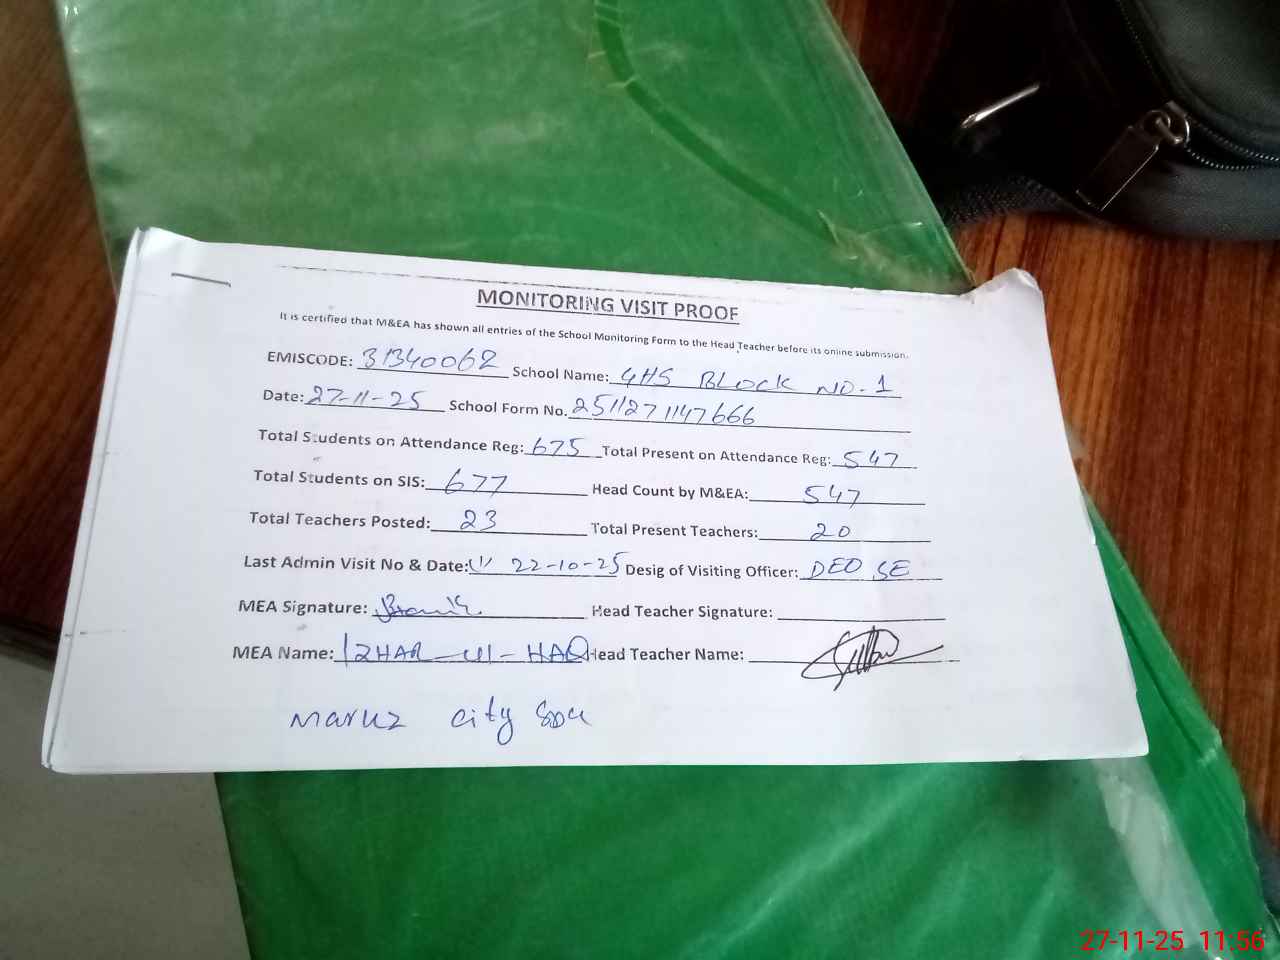 MONITORING VISIT PROOF
It is certified that M&EA has shown all entries of the School Monitoring Form to the Head Teacher before its online submission.
EMISCODE: 31340062 School Name: GHS BLOCK NO-1
Date: 27-11-25 School Form No. 2511271147666
Total Students on Attendance Reg: 675 Total Present on Attendance Reg: 547
Total Students on SIS: 677 Head Count by M&EA: 547
Total Teachers Posted: 23 Total Present Teachers: 20
Last Admin Visit No & Date: 22-10-25 Desig of Visiting Officer: DEO SE
MEA Signature: Head Teacher Signature:
MEA Name: IZHAR-UL-HAQ Head Teacher Name:
Markz city
27-11-25 11:56